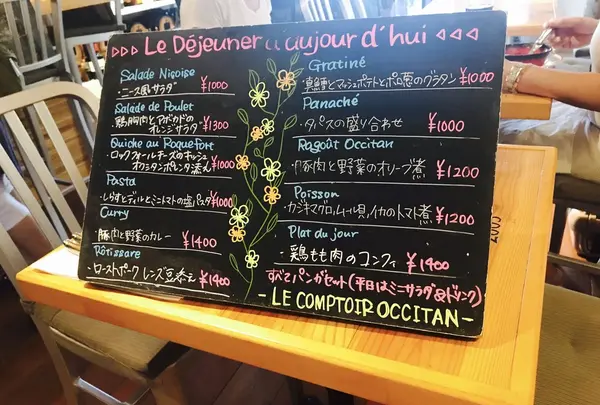 ▷▷▷ Le Déjeuner d'aujourd'hui ◁◁◁
Salade Niçoise
・ニース風サラダ ¥1000
Salade de Poulet
・鶏胸肉とアボカドの
オレンジサラダ ¥1300
Quiche au Roquefort
・ロックフォールチーズのキッシュ
オクシタンポレンタ添え ¥1000
Pasta
・しらすとディルとミニトマトの塩パスタ ¥1000
Curry
・豚肉と野菜のカレー ¥1400
Rôtissare
・ローストポーク レンズ豆添え ¥1400
Gratiné
・真鱈とマッシュポテトとポロ葱のグラタン ¥1000
Panaché
・タパスの盛り合わせ ¥1000
Ragoût Occitan
・豚肉と野菜のオリーブ煮 ¥1200
Poisson
・カジキマグロ、ムール貝、イカのトマト煮 ¥1200
Plat du jour
・鶏もも肉のコンフィ ¥1400
すべてパンがセット(平日はミニサラダ&ドリンク)
- LE COMPTOIR OCCITAN -